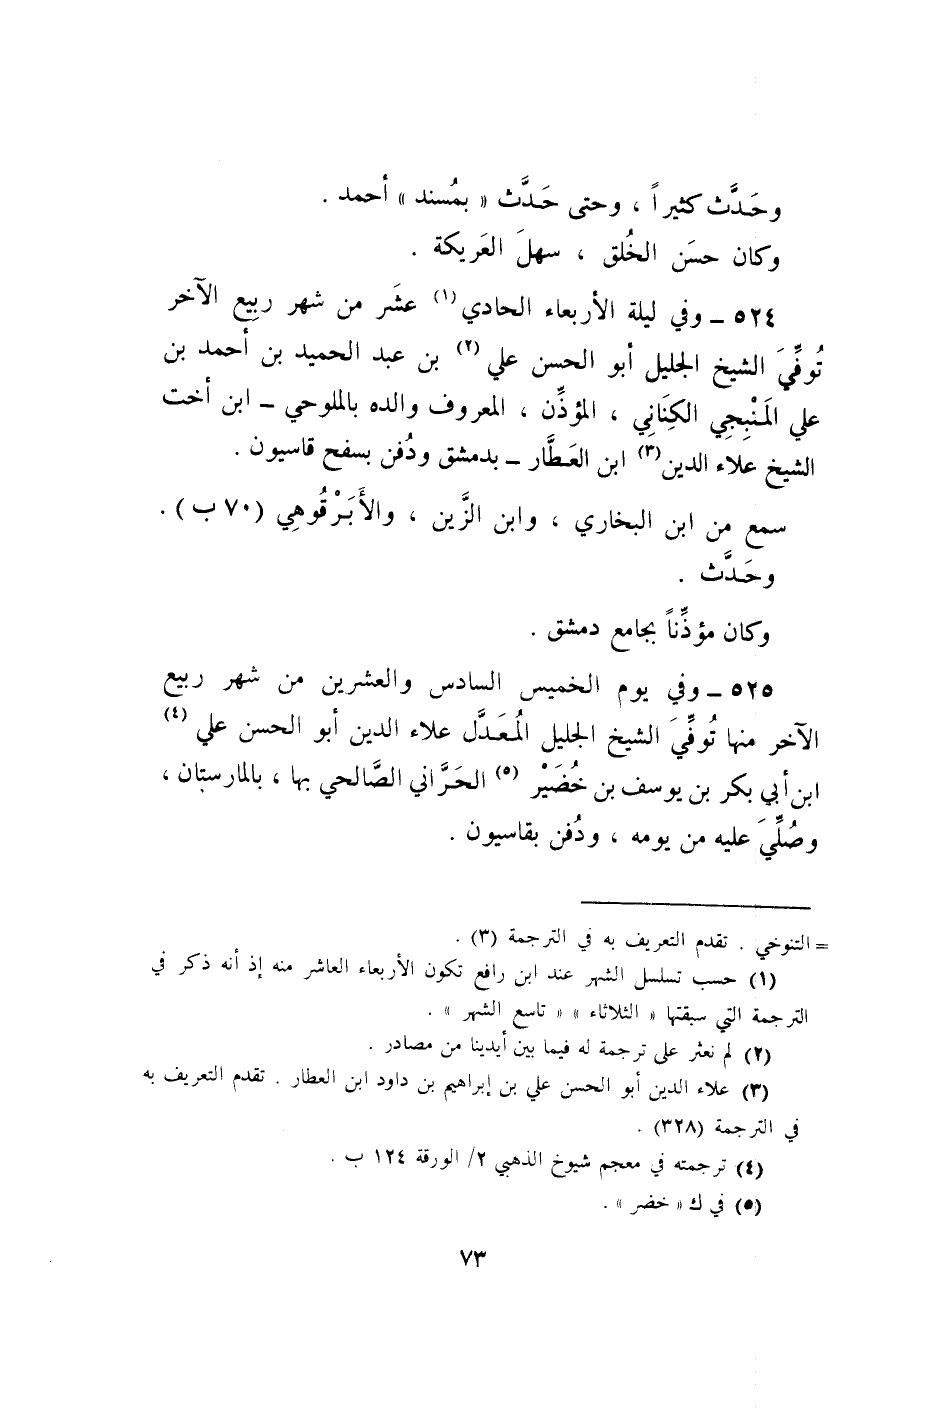 وحَدَّث كثيراً ، وحتى حَدَّث « بمُسند » أحمد .
وكان حسَن الخُلق ، سهلَ العَريكة .
٥٢٤ ـ وفي ليلة الأربعاء الحادي(١) عشَر من شهر ربيع الآخر
تُوفِّيَ الشيخ الجليل أبو الحسن علي(٢) بن عبد الحميد بن أحمد بن
علي المَنْبِجِي الكِنَاني ، المؤذِّن ، المعروف والده بالملوحي ـ ابن أخت
الشيخ علاء الدين(٣) ابن العَطَّار ـ بدمشق ودُفن بسفح قاسيون .
سمع من ابن البخاري ، وابن الزَّين ، والأَبَرْقُوهِي (٧٠ ب) .
وحَدَّث .
وكان مؤذِّناً بجامع دمشق .
٥٢٥ ـ وفي يوم الخميس السادس والعشرين من شهر ربيع
الآخر منها تُوفِّيَ الشيخ الجليل المُعَدَّل علاء الدين أبو الحسن علي(٤)
ابن أبي بكر بن يوسف بن خُضَيْر(٥) الحَرَّاني الصَّالحي بها ، بالمارستان ،
وصُلِّيَ عليه من يومه ، ودُفن بقاسيون .
= التنوخي . تقدم التعريف به في الترجمة (٣) .
(١) حسب تسلسل الشهر عند ابن رافع تكون الأربعاء العاشر منه إذ أنه ذكر في
الترجمة التي سبقتها « الثلاثاء » « تاسع الشهر » .
(٢) لم نعثر على ترجمة له فيما بين أيدينا من مصادر .
(٣) علاء الدين أبو الحسن علي بن إبراهيم بن داود ابن العطار . تقدم التعريف به
في الترجمة (٣٢٨) .
(٤) ترجمته في معجم شيوخ الذهبي ٢/ الورقة ١٢٤ ب .
(٥) في ك « خضر » .
٧٣